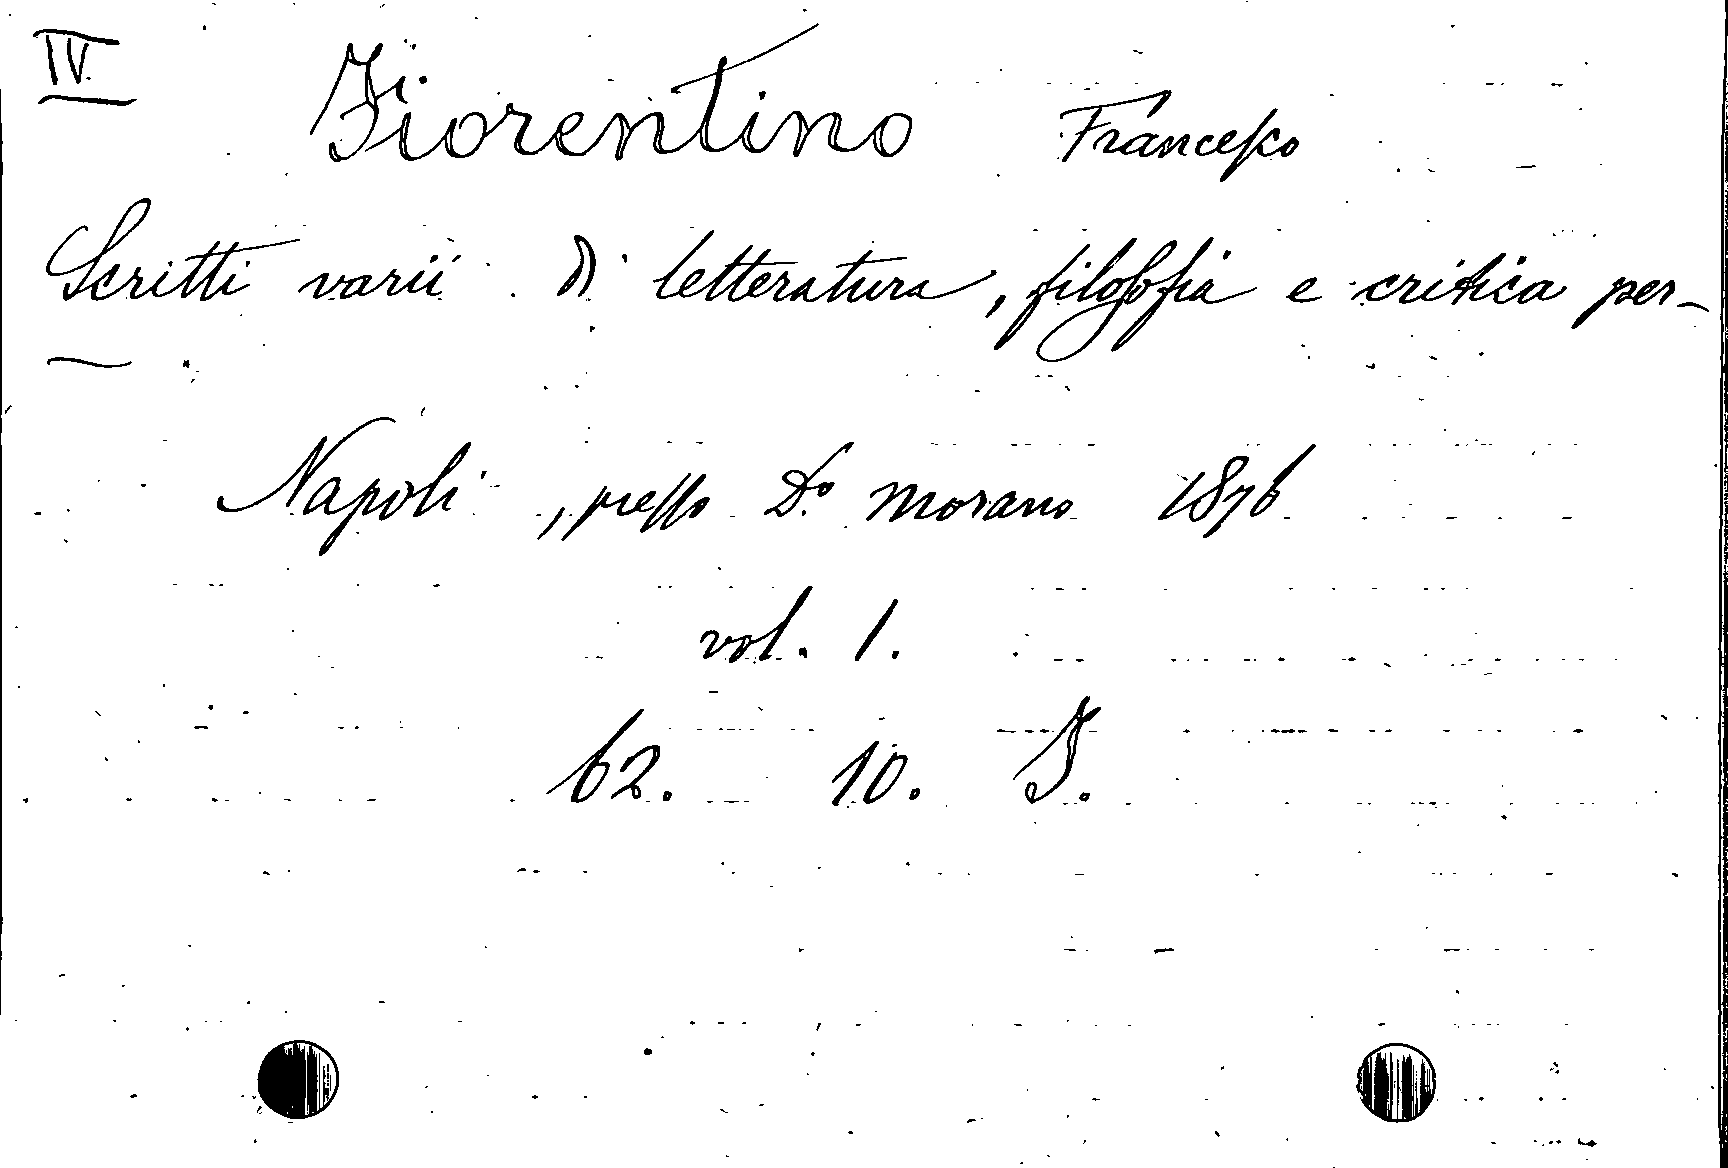 IV.
Fiorentino Francesco
Scritti varii di letteratura, filosofia e critica per-
—
Napoli, presso Do. Morano 1876
vol. 1.
62. 10. F.